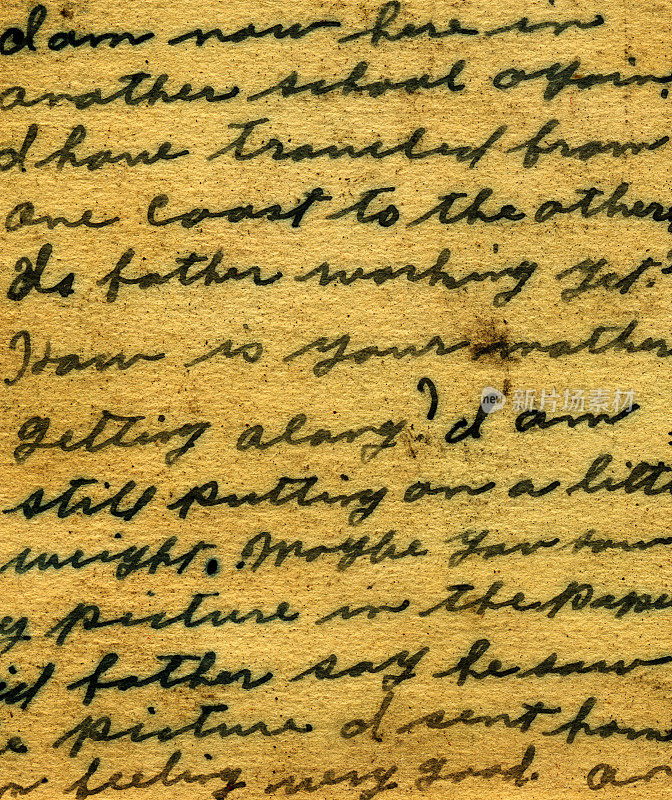 I am now here in
another school again.
I have traveled from
one coast to the other,
Is father working yet?
How is your mother
getting along? I am
still putting on a little
weight. Maybe you saw
y picture in the pape
id father say he saw
e picture I sent home
feeling very good.
new 新中国图片